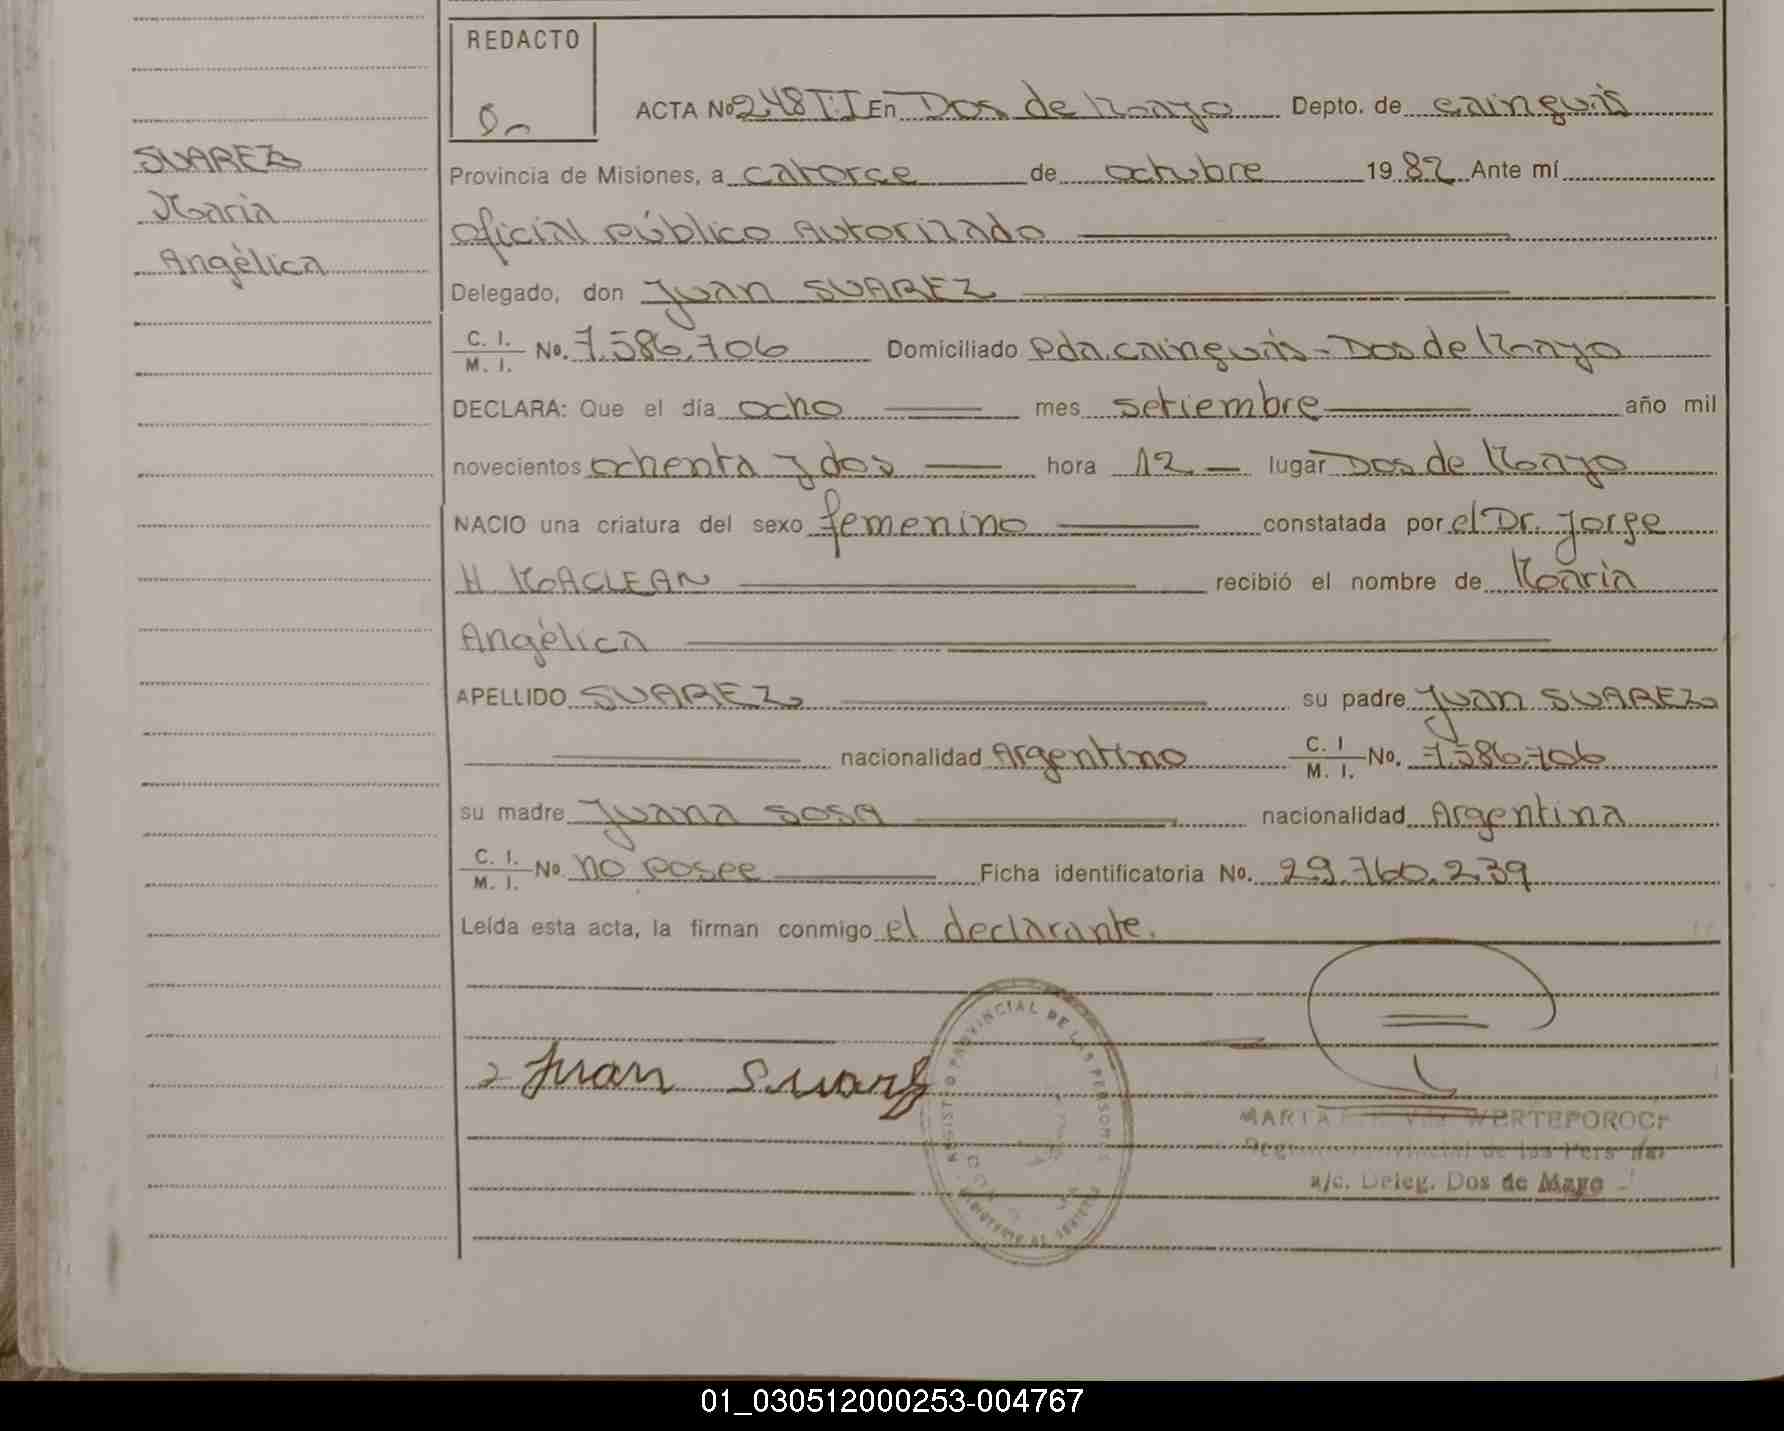 REDACTO
ACTA Nº 248 T.I En Dos de Mayo Depto. de cainguás
SUAREZ
Provincia de Misiones, a catorce de octubre 1982 Ante mí
Maria
oficial público Autorizado
Angélica
Delegado, don Juan SUAREZ
C. I. M. I. No. 7.586.706 Domiciliado Pda. cainguás - Dos de Mayo
DECLARA: Que el día ocho mes setiembre año mil
novecientos ochenta y dos hora 12 lugar Dos de Mayo
NACIO una criatura del sexo femenino constatada por el Dr. Jorge
H MACLEAN recibió el nombre de Maria
Angélica
APELLIDO SUAREZ su padre Juan SUAREZ
nacionalidad Argentino C. I M. I. No. 7.586.706
su madre Juana SOSA nacionalidad Argentina
C. I. M. I. No no posee Ficha identificatoria No. 29.760.239
Leída esta acta, la firman conmigo el declarante.
Juan Suarez
REGISTRO PROVINCIAL DE LAS PERSONAS
MARTA WERTEPOROCH
Registro Provincial de las Personas
a/c. Deleg. Dos de Mayo
01_030512000253-004767